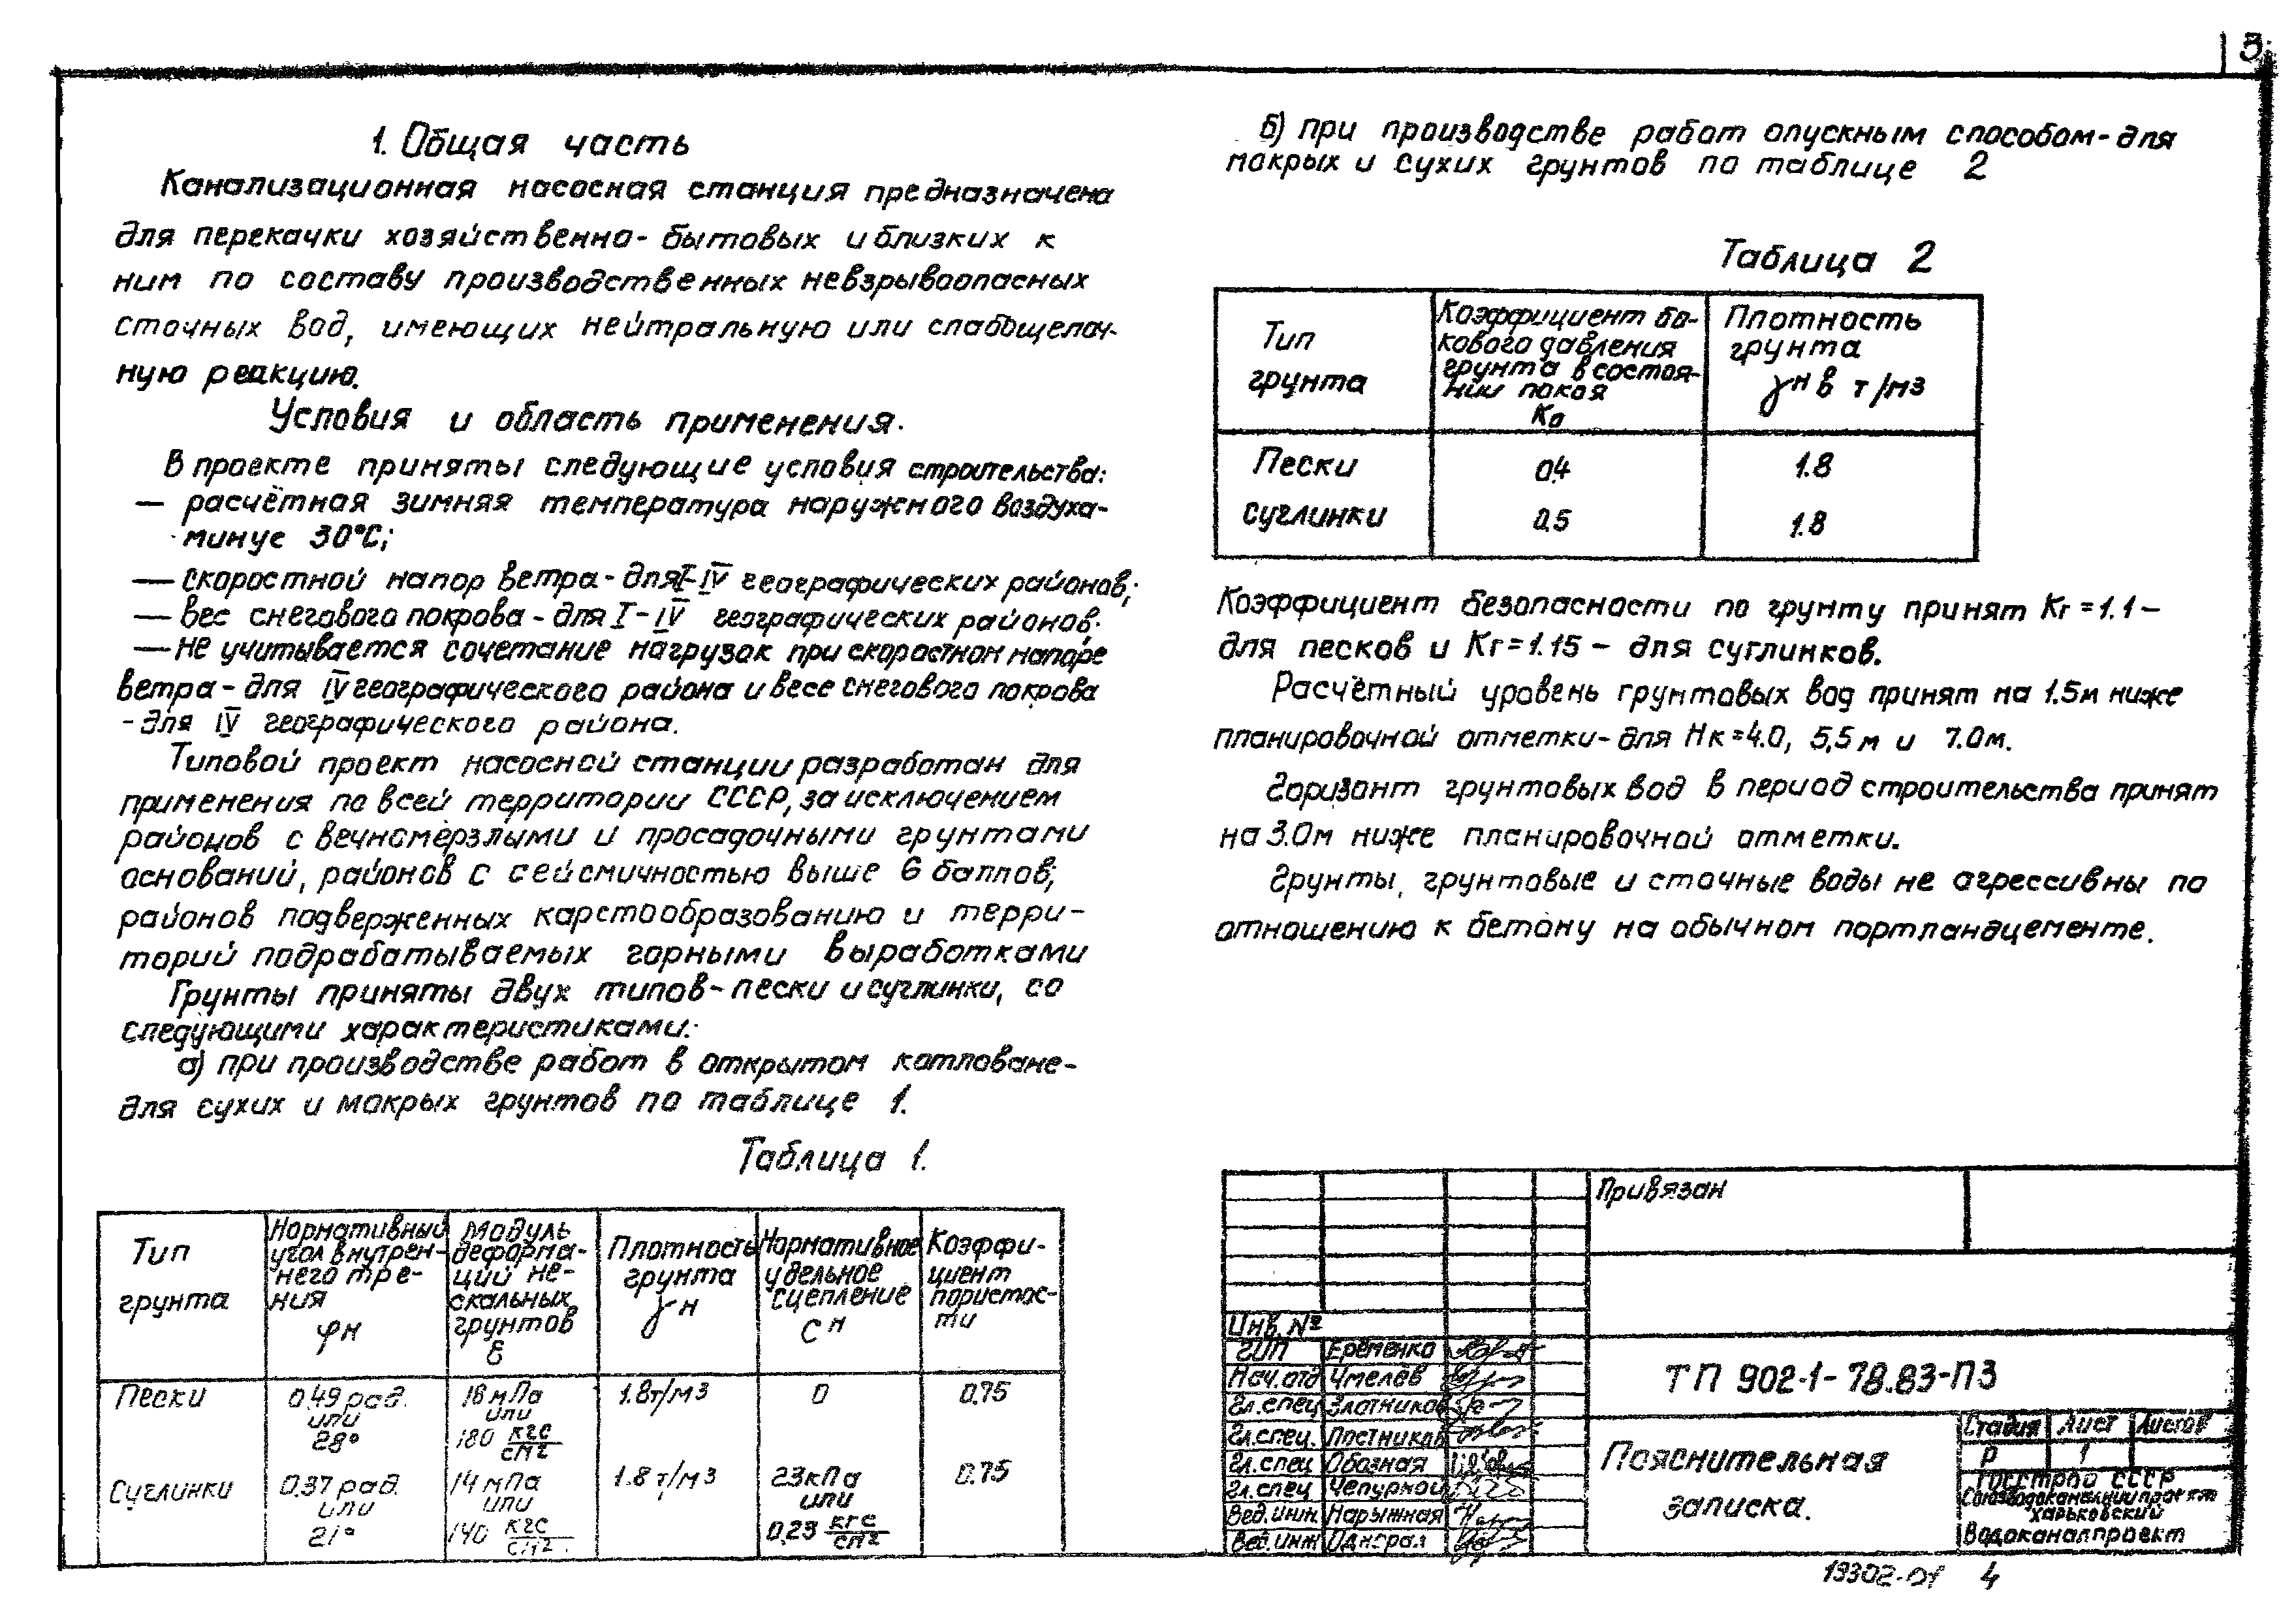 3
1. Общая часть
Канализационная насосная станция предназначена
для перекачки хозяйственно-бытовых и близких к
ним по составу производственных невзрывоопасных
сточных вод, имеющих нейтральную или слабощелоч-
ную реакцию.
Условия и область применения.
В проекте приняты следующие условия строительства:
— расчётная зимняя температура наружного воздуха-
минус 30°С;
— скоростной напор ветра - для I-IV географических районов;
— вес снегового покрова - для I-IV географических районов.
— не учитывается сочетание нагрузок при скоростном напоре
ветра - для IV географического района и весе снегового покрова
- для IV географического района.
Типовой проект насосной станции разработан для
применения по всей территории СССР, за исключением
районов с вечномёрзлыми и просадочными грунтами
оснований, районов с сейсмичностью выше 6 баллов;
районов подверженных карстообразованию и терри-
торий подрабатываемых горными выработками
Грунты приняты двух типов - пески и суглинки, со
следующими характеристиками:
а) при производстве работ в открытом котловане-
для сухих и мокрых грунтов по таблице 1.
Таблица 1.
Тип
грунта
Нормативный
угол внутрен-
него тре-
ния
φн
Модуль
деформа-
ций не-
скальных
грунтов
Е
Плотность
грунта
γн
Нормативное
удельное
сцепление
Сн
Коэффи-
циент
пористос-
ти
Пески
0.49 рад.
или
28°
18 мПа
или
180 кгс/см2
1.8т/м3
0
0.75
Суглинки
0.37 рад
или
21°
14 мПа
или
140 кгс/см2
1.8 т/м3
23кПа
или
0.23 кгс/см2
0.75
б) при производстве работ опускным способом - для
мокрых и сухих грунтов по таблице 2
Таблица 2
Тип
грунта
Коэффициент бо-
кового давления
грунта в состоя-
нии покоя
Ко
Плотность
грунта
γн в т/м3
Пески
0.4
1.8
суглинки
0.5
1.8
Коэффициент безопасности по грунту принят Кг = 1.1 —
для песков и Кг = 1.15 — для суглинков.
Расчётный уровень грунтовых вод принят на 1.5м ниже
планировочной отметки - для Нк = 4.0, 5,5 м и 7.0м.
Горизонт грунтовых вод в период строительства принят
на 3.0м ниже планировочной отметки.
Грунты, грунтовые и сточные воды не агрессивны по
отношению к бетону на обычном портландцементе.
Привязан
Инв. №
ГИП Еременко
Нач. отд Чмелёв
Гл. спец Злотников
Гл. спец. Постников
Гл. спец Обозная
Гл. спец Чепурной
Вед. инж. Нарыжная
Вед. инж
ТП 902-1-78.83-ПЗ
Пояснительная
записка.
Стадия Лист Листов
Р 1
Госстрой СССР
Союзводоканалниипроект
Харьковский
Водоканалпроект
19302-01 4